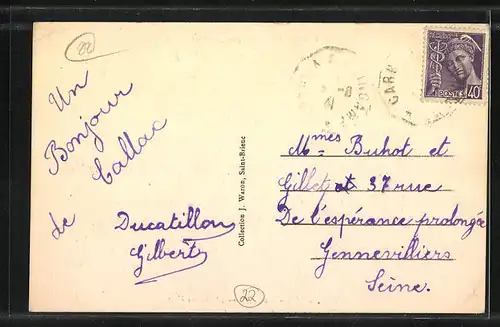 22
Un
Bonjour
de Callac
Ducatillon
Gilbert
22
Collection J. Waron, Saint-Brieuc
POSTES 40
Mmes Buhot et
Gillet et 37 rue
De l'espérance prolongée
Gennevilliers
Seine.